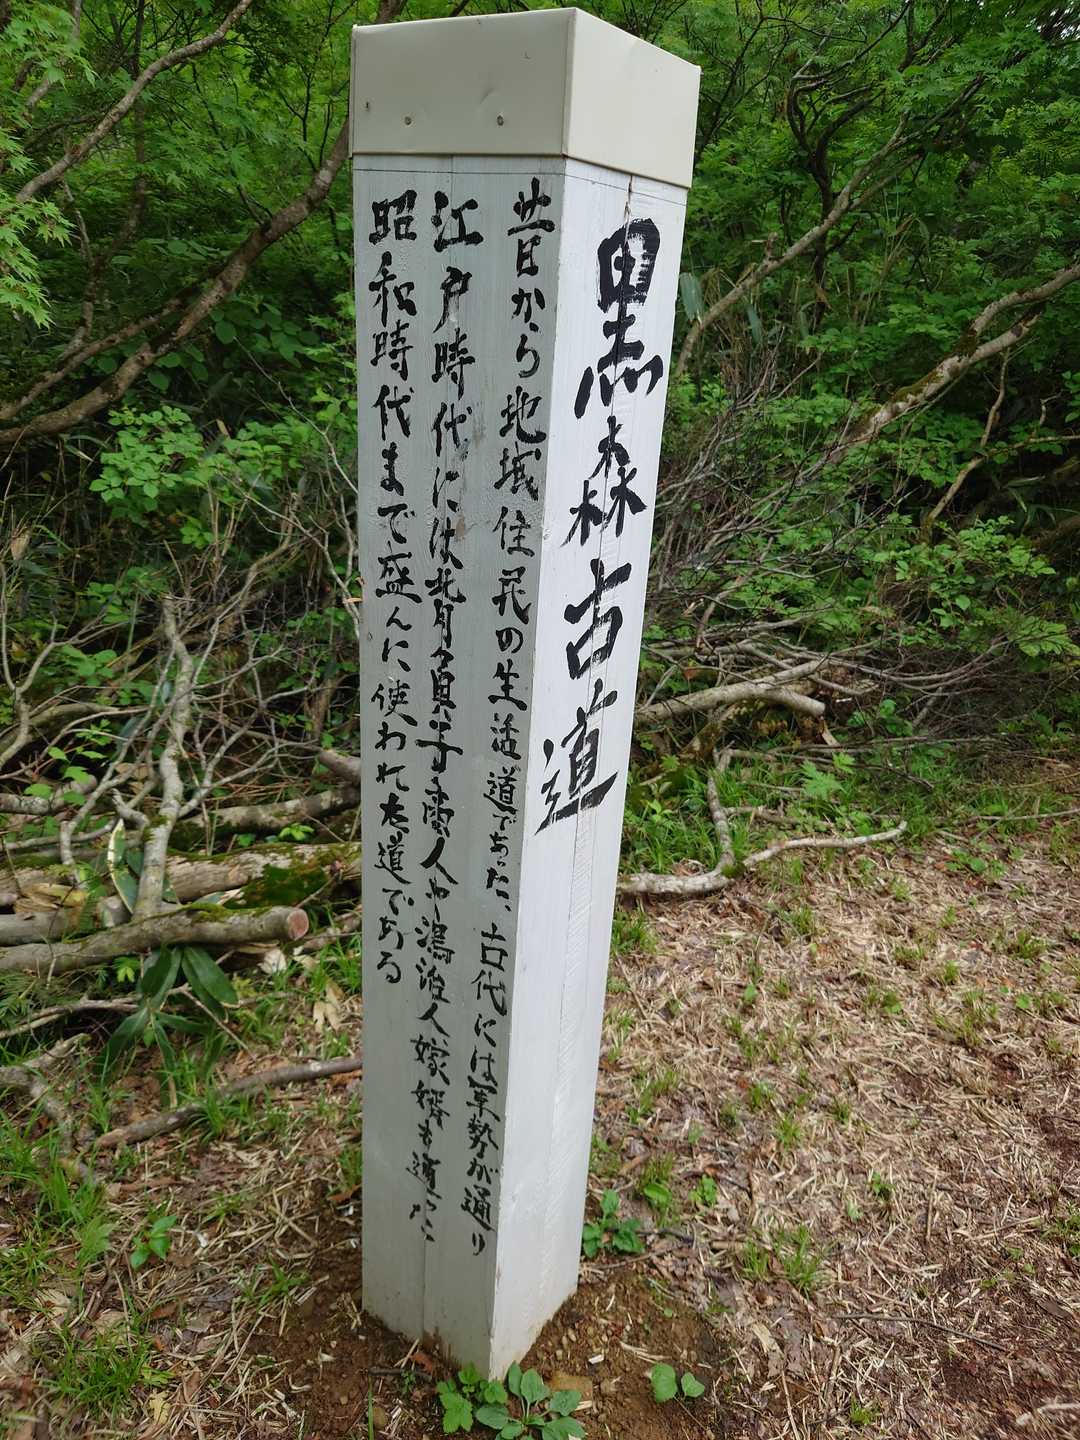 黒森古道
昔から地域住民の生活道であった、古代には軍勢が通り
江戸時代には背負子商人や湯治人嫁婿も通った
昭和時代まで盛んに使われた道である